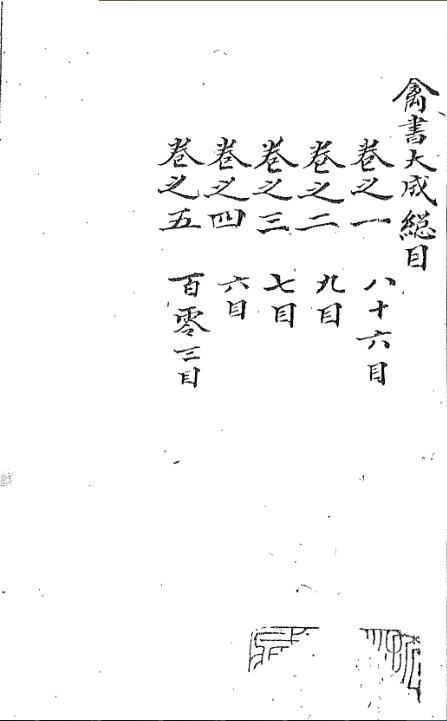 禽書大成総目
卷之一 八十六目
卷之二 九目
卷之三 七目
卷之四 六目
卷之五 百零三目